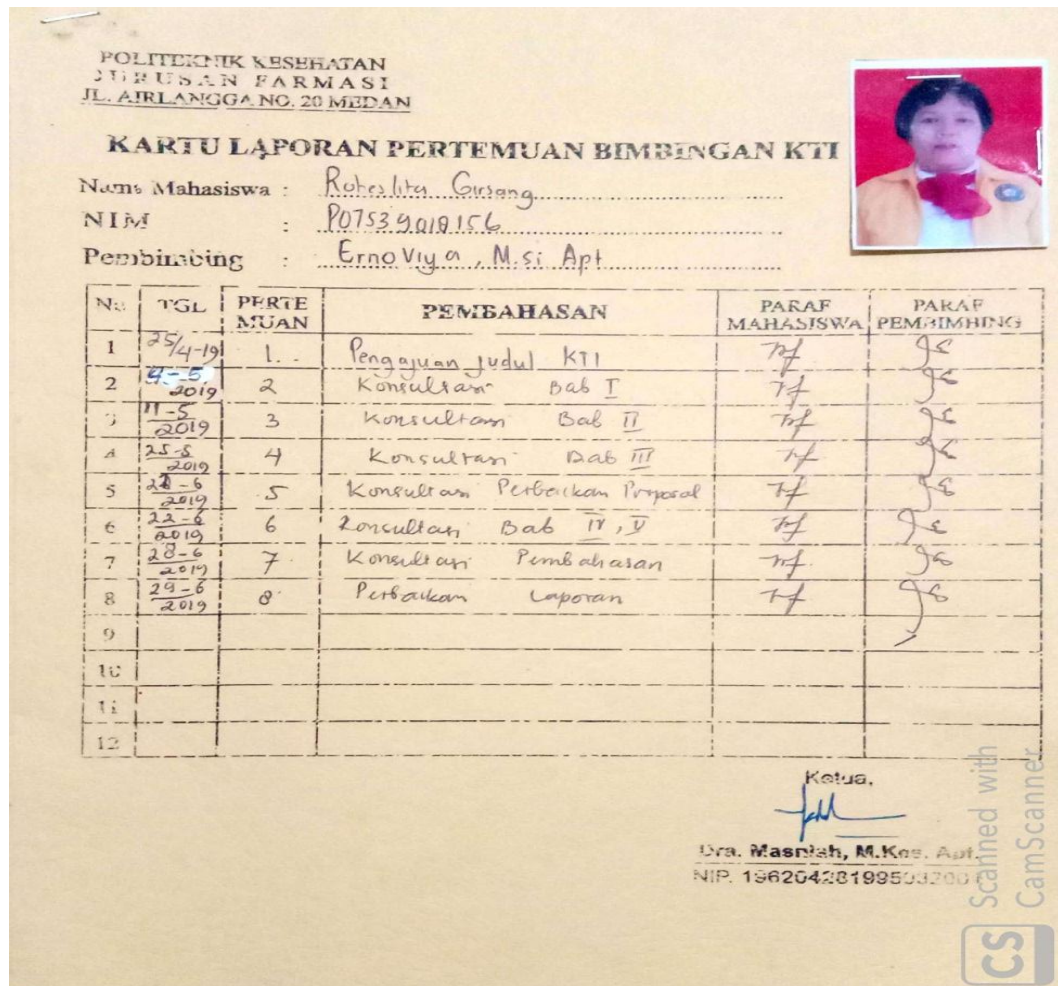 POLITEKNIK KESEHATAN
JURUSAN FARMASI
JL. AIRLANGGA NO. 20 MEDAN
KARTU LAPORAN PERTEMUAN BIMBINGAN KTI
Nama Mahasiswa : Roheslita Girsang
NIM : P07539018156
Pembimbing : Ernoviya, M.si Apt
No TGL PERTEMUAN PEMBAHASAN PARAF MAHASISWA PARAF PEMBIMBING
1 25/4-19 1. Pengajuan judul KTI
2 4-5 2019 2 Konsultasi Bab I
3 11-5 2019 3 Konsultasi Bab II
4 25-5 2019 4 Konsultasi Bab III
5 -6 2019 5 Konsultasi Perbaikan Proposal
6 22-6 2019 6 Konsultasi Bab IV, V
7 28-6 2019 7 Konsultasi Pembahasan
8 29-6 2019 8 Perbaikan Laporan
9
10
11
12
Ketua,
Dra. Masniah, M.Kes. Apt.
NIP. 196204281995032001
CS Scanned with CamScanner